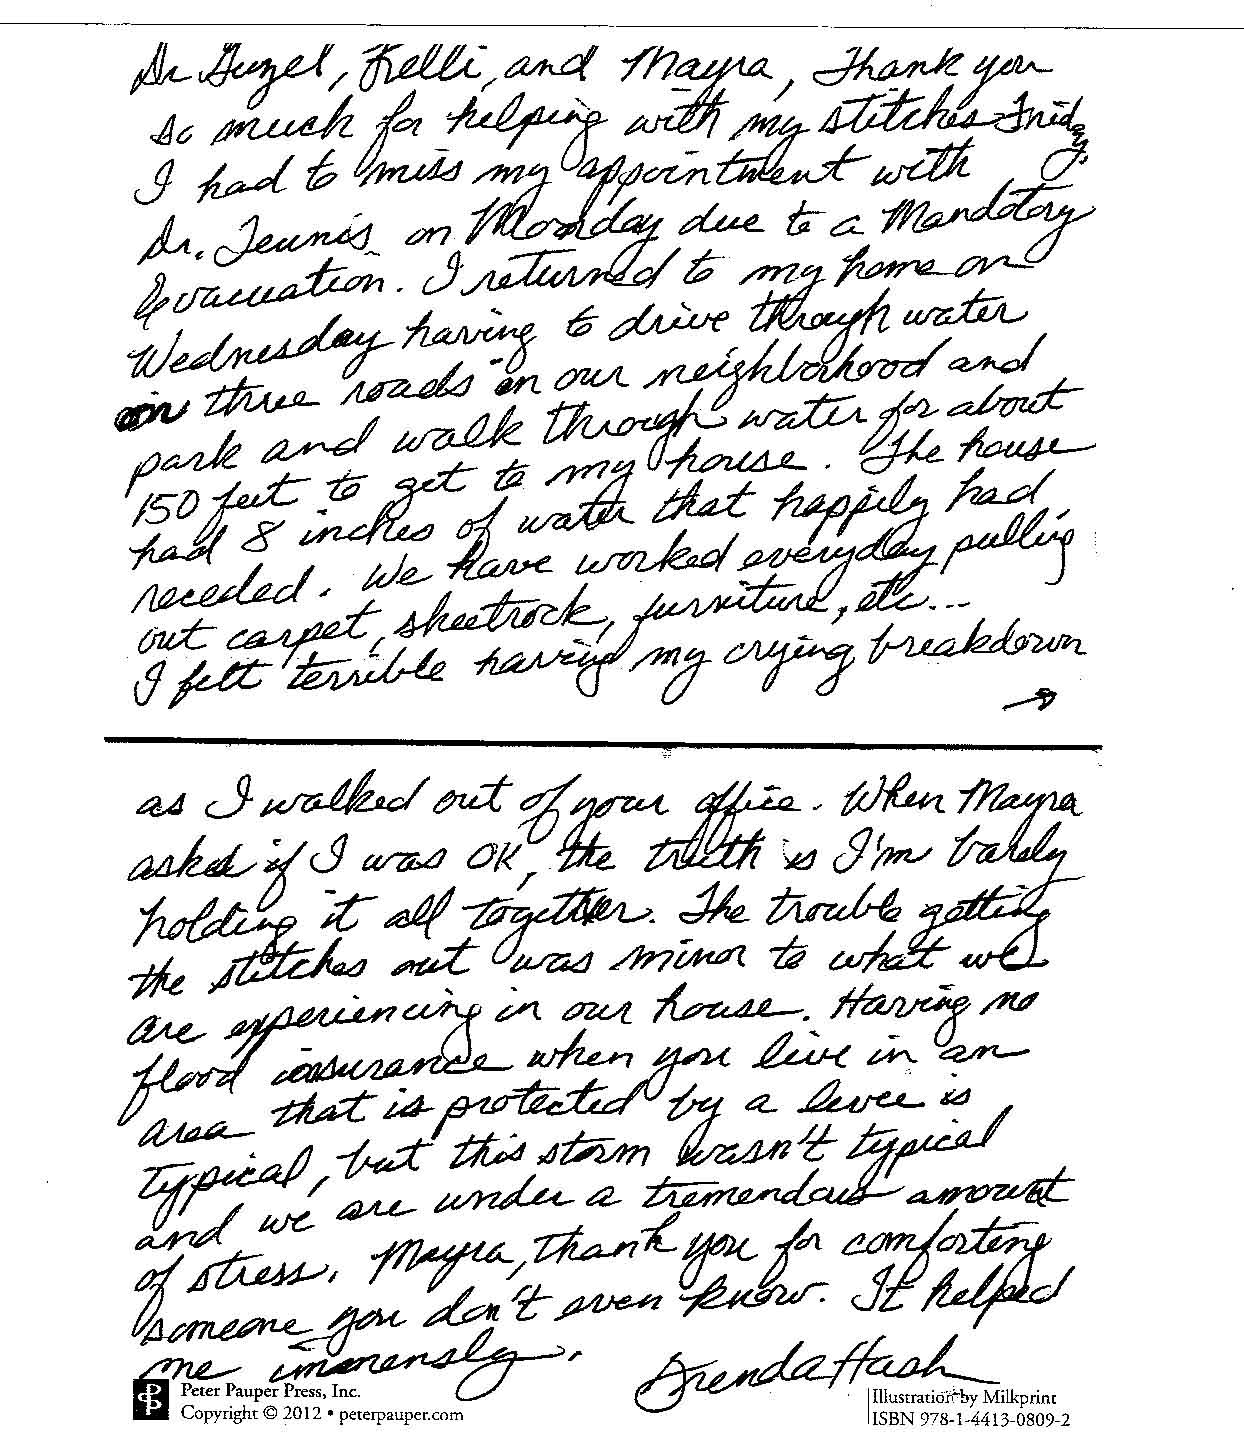 Dr Guzel, Kelli, and Mayra, Thank you
so much for helping with my stitches Friday.
I had to miss my appointment with
Dr. Teunis on Monday due to a Mandatory
Evacuation. I returned to my home on
Wednesday having to drive through water
on three roads in our neighborhood and
park and walk through water for about
150 feet to get to my house. The house
had 8 inches of water that happily had
receded. We have worked everyday pulling
out carpet, sheetrock, furniture, etc...
I felt terrible having my crying breakdown
→
as I walked out of your office. When Mayra
asked if I was OK, the truth is I'm barely
holding it all together. The trouble getting
the stitches out was minor to what we
are experiencing in our house. Having no
flood insurance when you live in an
area that is protected by a levee is
typical, but this storm wasn't typical
and we are under a tremendous amount
of stress. Mayra, thank you for comforting
someone you don't even know. It helped
me immensely.
Brenda Hash
Peter Pauper Press, Inc.
Copyright © 2012 • peterpauper.com
Illustration by Milkprint
ISBN 978-1-4413-0809-2